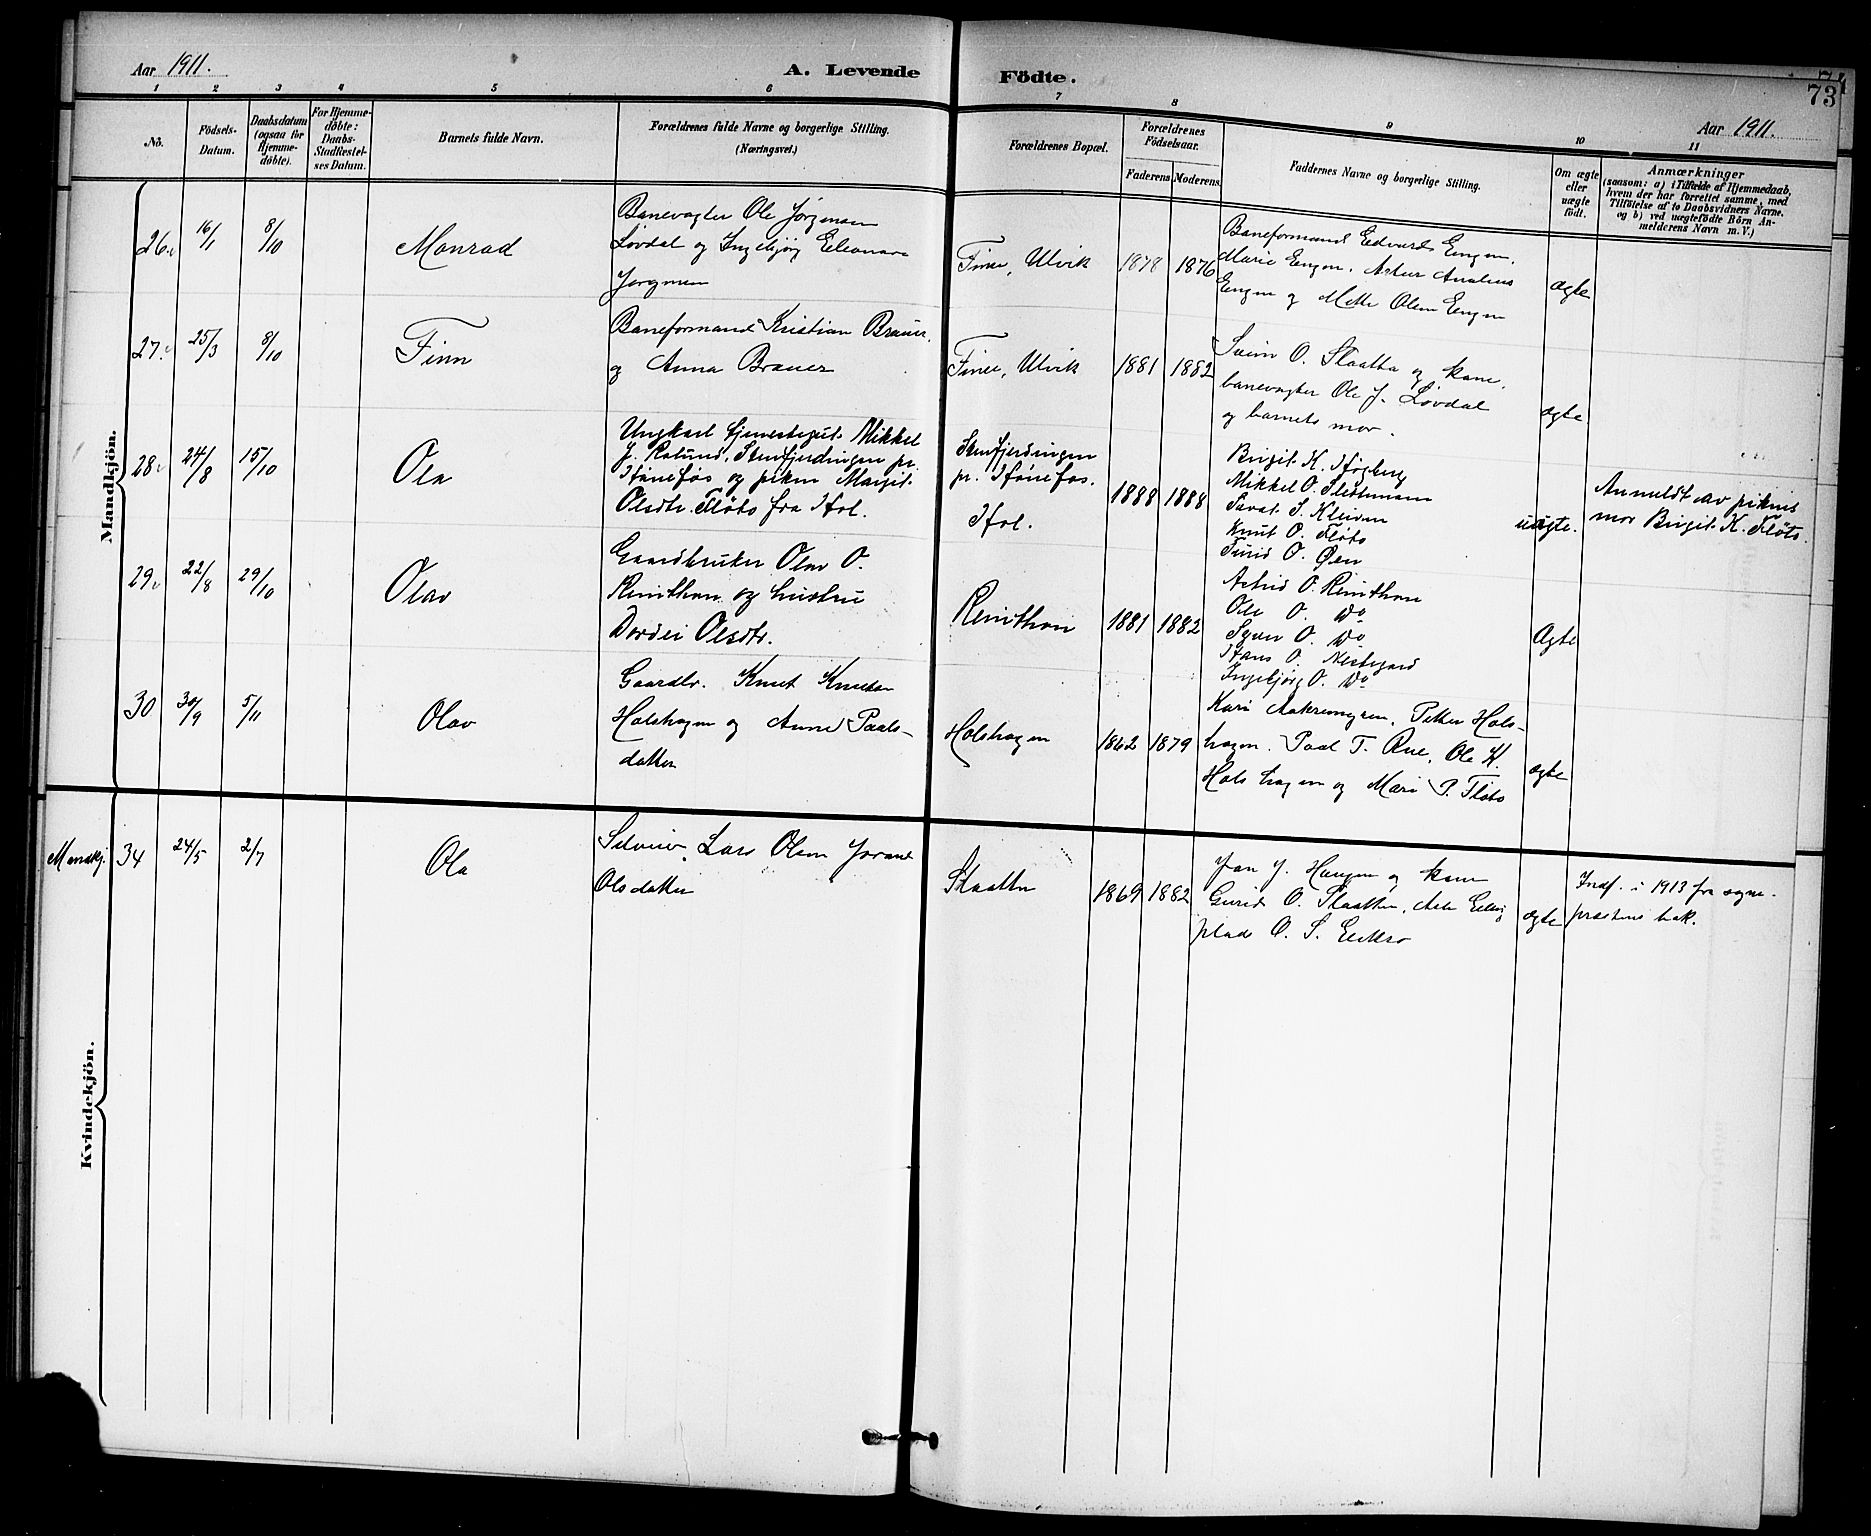 Aar 1911.
A. Levende
Födte.
73
Aar 1911.
1 2 3 4 5 6 7 8 9 10 11
No.
Födsels-
Datum.
Daabsdatum
(ogsaa for
Hjemme-
döbte).
For Hjemme-
döbte:
Daabs-
Stadfæstel-
ses Datum.
Barnets fulde Navn.
Forældrenes fulde Navne og borgerlige Stilling.
(Næringsvei.)
Forældrenes Bopæl.
Forældrenes
Födselsaar.
Faderens Moderens
Faddernes Navne og borgerlige Stilling.
Om ægte
eller
uægte
født.
Anmærkninger
(saasom: a) i Tilfælde af Hjemmedaab,
hvem der har forrettet samme, med
Tilföielse af to Daabsvidners Navne,
og b) ved uægtefödte Börn An-
melderens Navn m.V.)
Mandkjön.
26
16/1
8/10
Monrad
Banevogter Ole Jørgensen
Løvdal og Ingebjørg Eleonare
Jørgensen
Finse, Ulvik
1878
1876
Baneformand Edvard Engen,
Marie Engen, Artur
Engen og Mette Olsen Engen
ægte
27.
25/3
8/10
Finn
Baneformand Kristian Brauer,
og Anna Brauer
Finse, Ulvik
1881
1882
Svein O. Slaatta og kone,
banevogter Ole J. Løvdal
og barnets mor.
ægte
28
24/8
15/10
Ola
Ungkarl tjenestegut Mikkel
J. Rolund, Stenfjerdingen pr.
Hønefos og piken Margit
Olsdtr. Fløto fra Hol.
Stenfjerdingen
pr. Hønefos.
Hol.
1888
1888
Birgit K. Høgberg
Mikkel O.
S. Kleiven
Knut O. Fløto
Turid O. Øen
uægte.
Anmeldt av pikens
mor Birgit K. Fløto.
29
22/8
29/10
Olav
Gaardbruker Olav O.
Reinthon og hustru
Dordei Olsdtr.
Reinthon
1881
1882
Astrid O. Reinthon
Ole O. Do
Sven O. Do
Hans O. Nestegard
Ingebjørg O. Do
Ægte
30
30/9
5/11
Olav
Gaardbr. Knut Knutsen
Holshagen og Anne Paals-
datter
Holshagen
1862
1879
Kari Aakremoen, Petter Hols-
hagen. Paal T. Rue, Ole K.
Holshagen og Mari P. Fløto
ægte
Kvindekjön.
Mandkj.
34
24/5
2/7
Ola
Selveier, Lars Olsen Jorand
Olsdatter
Slaatto
1869
1882
Jon J. Haugen og kone
Gurid O. Slaatten, Asle
O. S.
ægte
Indf. i 1913 fra sogne-
prestens bok.